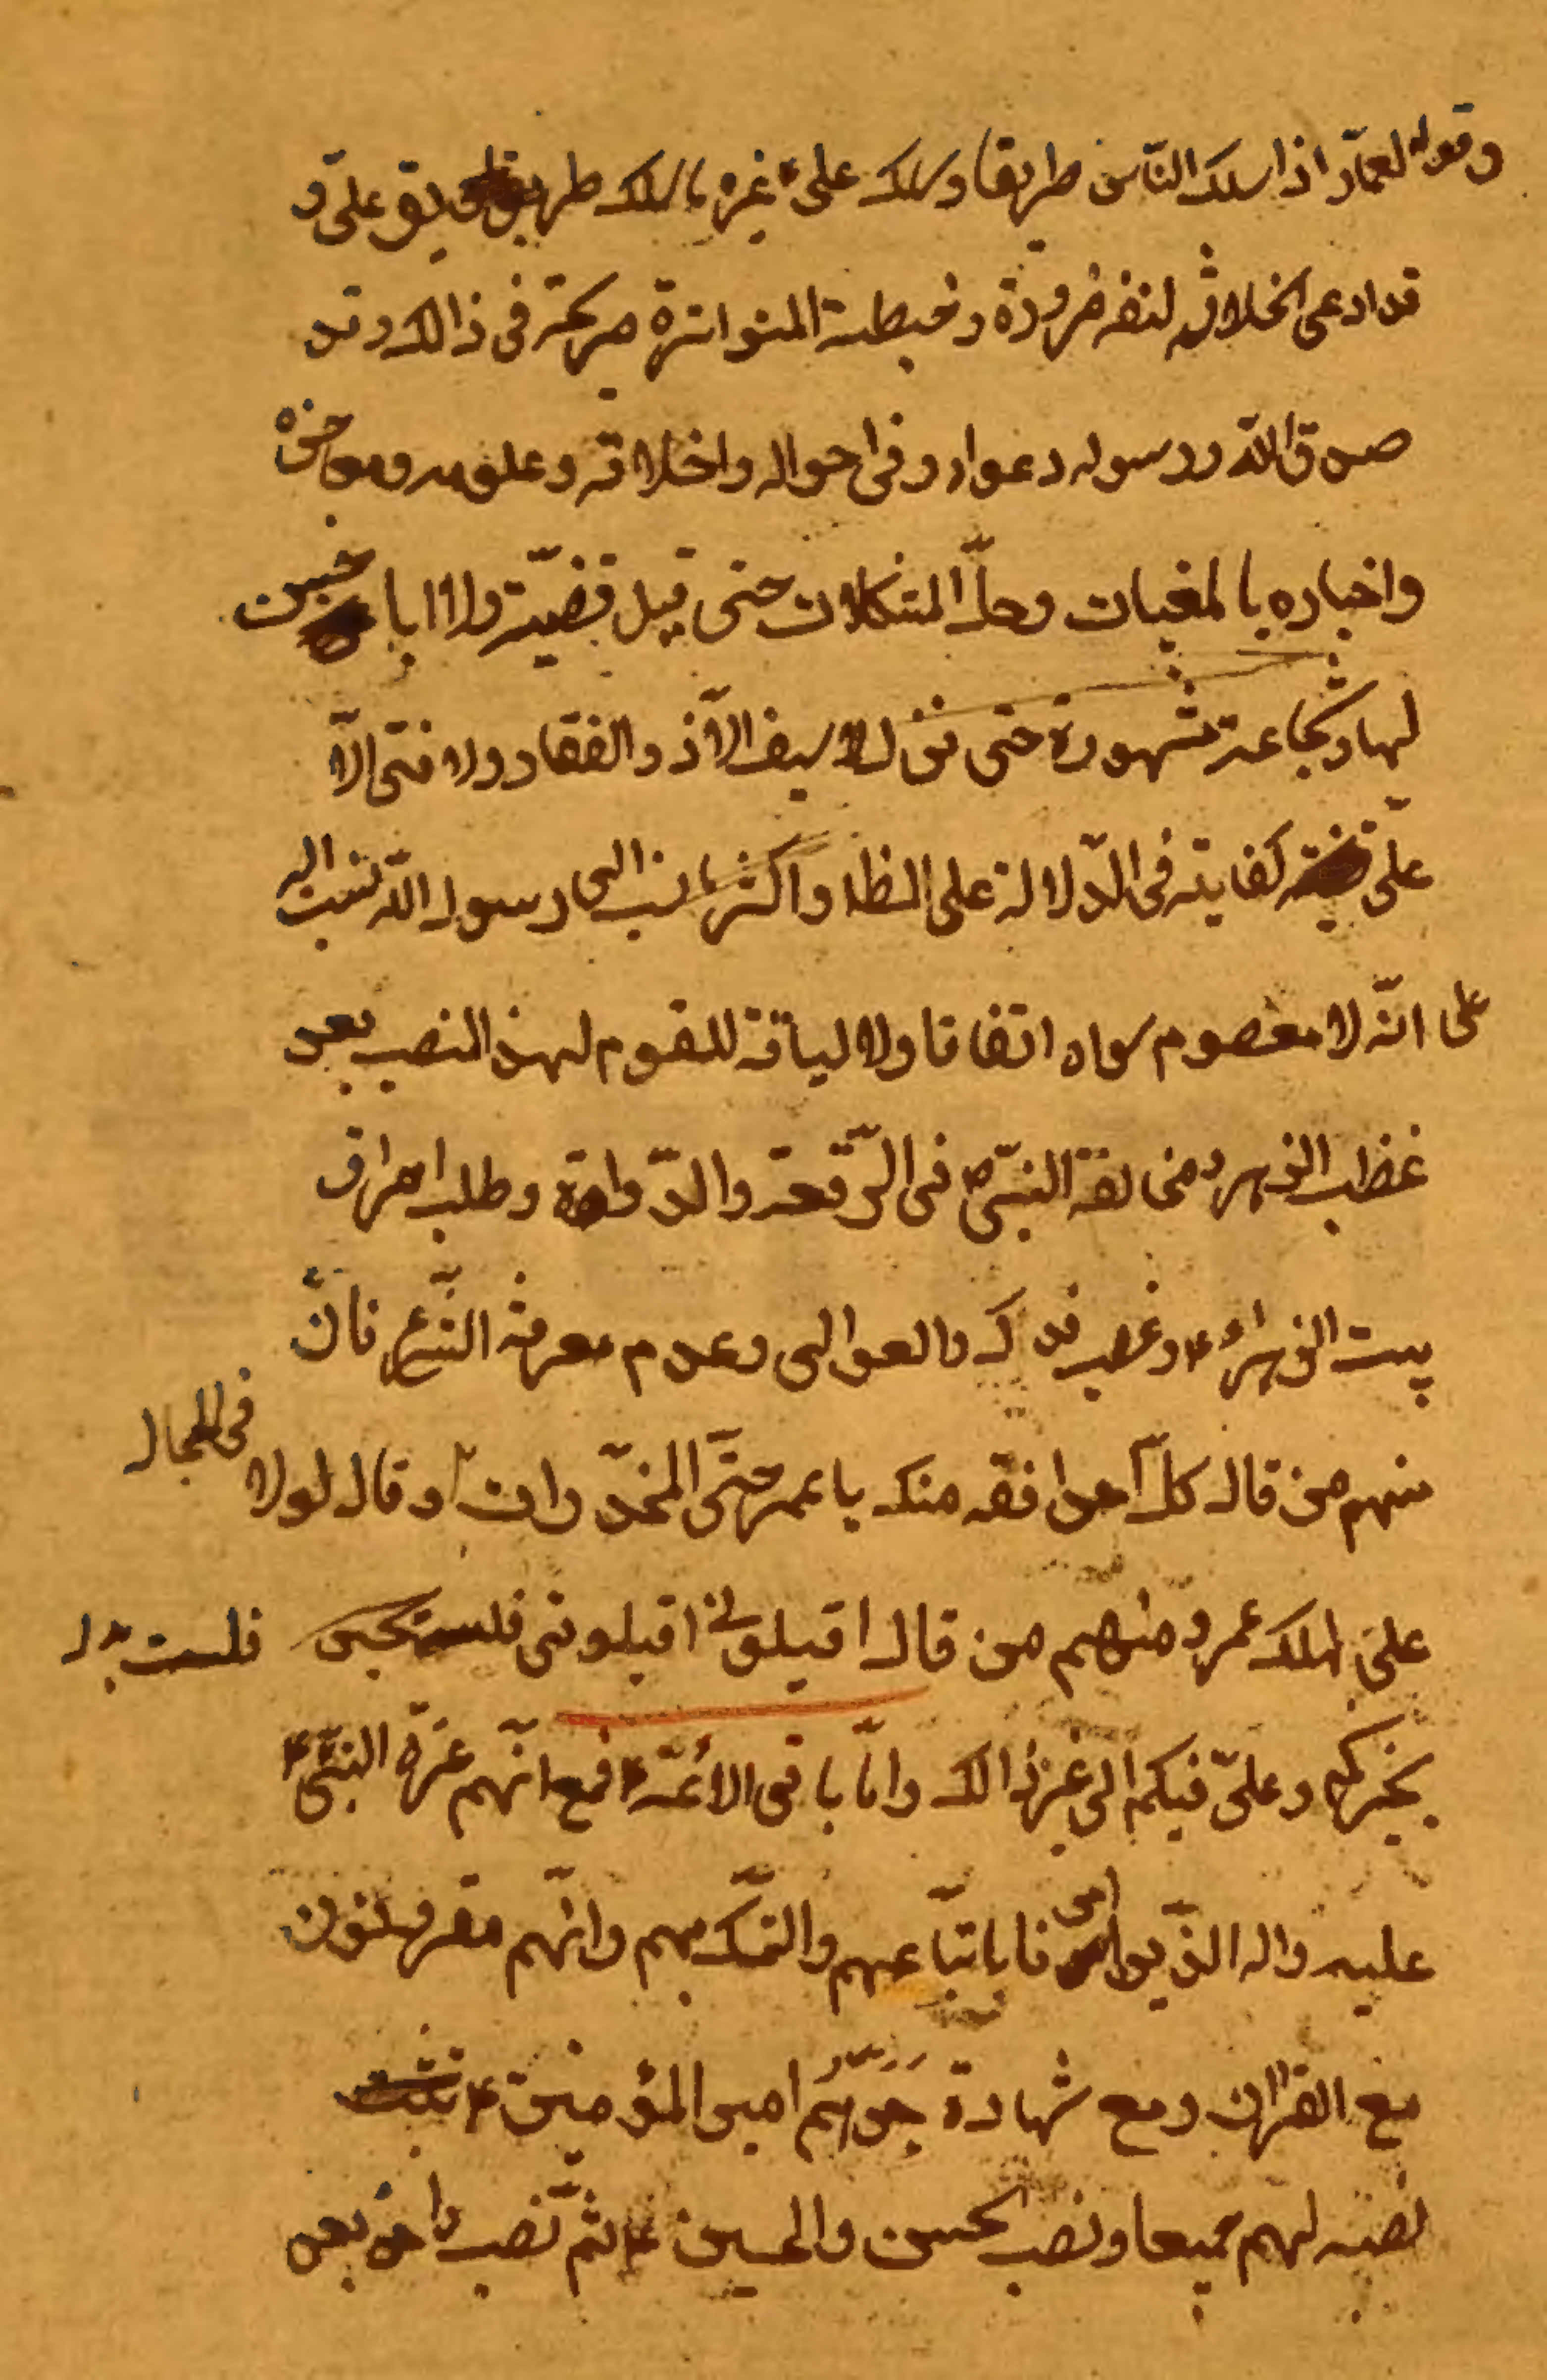 وقوله لعمّار اذا سلك الناس طريقا وسلك علىّ غيره فاسلك طريق علىّ و
قد ادعى الخلافة لنفسه ضرورة وخطبته المتواترة صريحة فى ذالك وقد
صدق الله ورسوله دعواه وفى احواله واخلاقه وعلومه ومعاجزه
واخباره بالمغيبات وحلّ المشكلات حتى قيل قضيّة ولا ابا حسن
لها وشجاعة مشهورة حتى نزل لا سيف الّا ذو الفقار ولا فتى الّا
علىّ كفاية فى الدّلالة على المط واكثر ما نسب الى رسول الله نسب اليه
على انّه لا معصوم سواه اتفاقا ولا لياقة للقوم لهذ المنصب بعد
غضب الزهراء ومخالفة النبىّ ص فى الرّقعة والدّواة وطلب احراق
بيت الزهراء ع وغصب فدك والعوالى وعدم معرفة الشّرع فانّ
منهم من قال كلّ احد افقه منك يا عمر حتّى المخدّرات وقال لولا
فى الحجال
علىّ لهلك عمر ومنهم من قال اقيلونى اقيلونى فلست
فلست
بخيركم وعلىّ فيكم الى غير ذالك وامّا باقى الائمّة ع فمع انّهم عترة النبىّ
عليه واله الذّين امرنا باتّباعهم والتمسّك بهم وانّهم مقرونون
مع القرآن ومع شهادة جدّهم امير المؤمنين ع
نصبه لهم جميعا ونصب الحسن والحسين ع ثمّ نصب واحد بعد